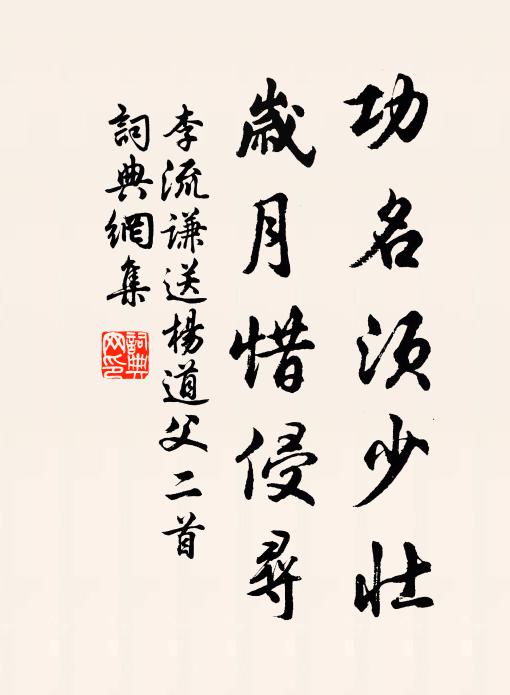 功名須少壯
歲月惜侵尋
李流謙送楊道父二首
詞典網集
詞典
网印